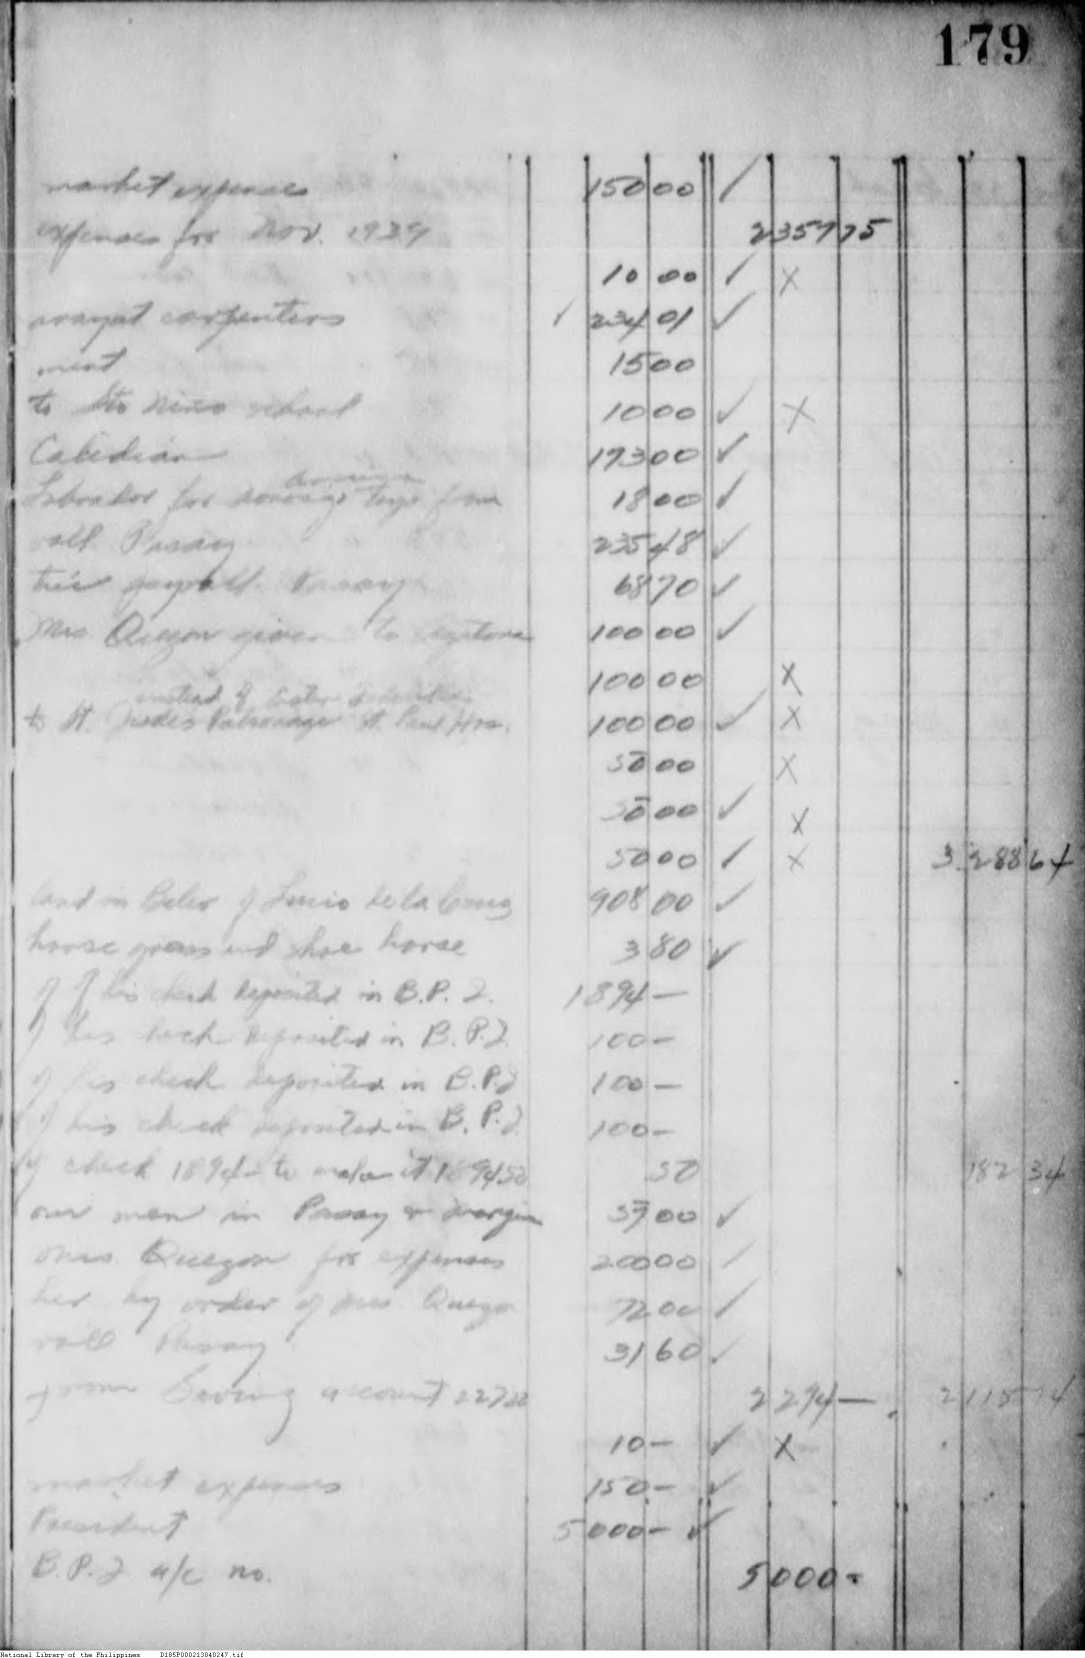 179
market expenses 150 00 ✓
expenses for Nov. 1939 2359 75
10 00 ✓ X
arayat carpenters ✓ 234 01 ✓
ment 15 00
to Sto Nino school 10 00 ✓ X
Caledian 173 00 ✓
Labrador for 18 00 ✓
roll Pasay 235 48 ✓
payroll Pasay 68 70 ✓
Mrs Quezon given to 100 00 ✓
100 00 X
instead of
to St. Jude's Patronage St. Paul Hos. 100 00 ✓ X
50 00 X
50 00 ✓ X
50 00 ✓ X 3 288 64
land in Baler of Lucio de la Cruz 908 00 ✓
horse grass and shoe horse 3 80 ✓
of his check deposited in B.P.I. 1894 —
of his check deposited in B.P.I. 100 —
of his check deposited in B.P.I 100 —
of his check deposited in B.P.I. 100 —
of check 1894— to make it 1894.50 50 182 34
our men in Pasay & 00 ✓
Mrs. Quezon for expenses 200 00 ✓
her by order of Mrs. Quezon 72 00 ✓
roll Pasay 31 60 ✓
from Saving account 2294 —
10 — ✓ X
market expenses 150 — ✓
President 5000 — ✓
B.P.I a/c no. 5000 -
National Library of the Philippines D185P000213040247.tif